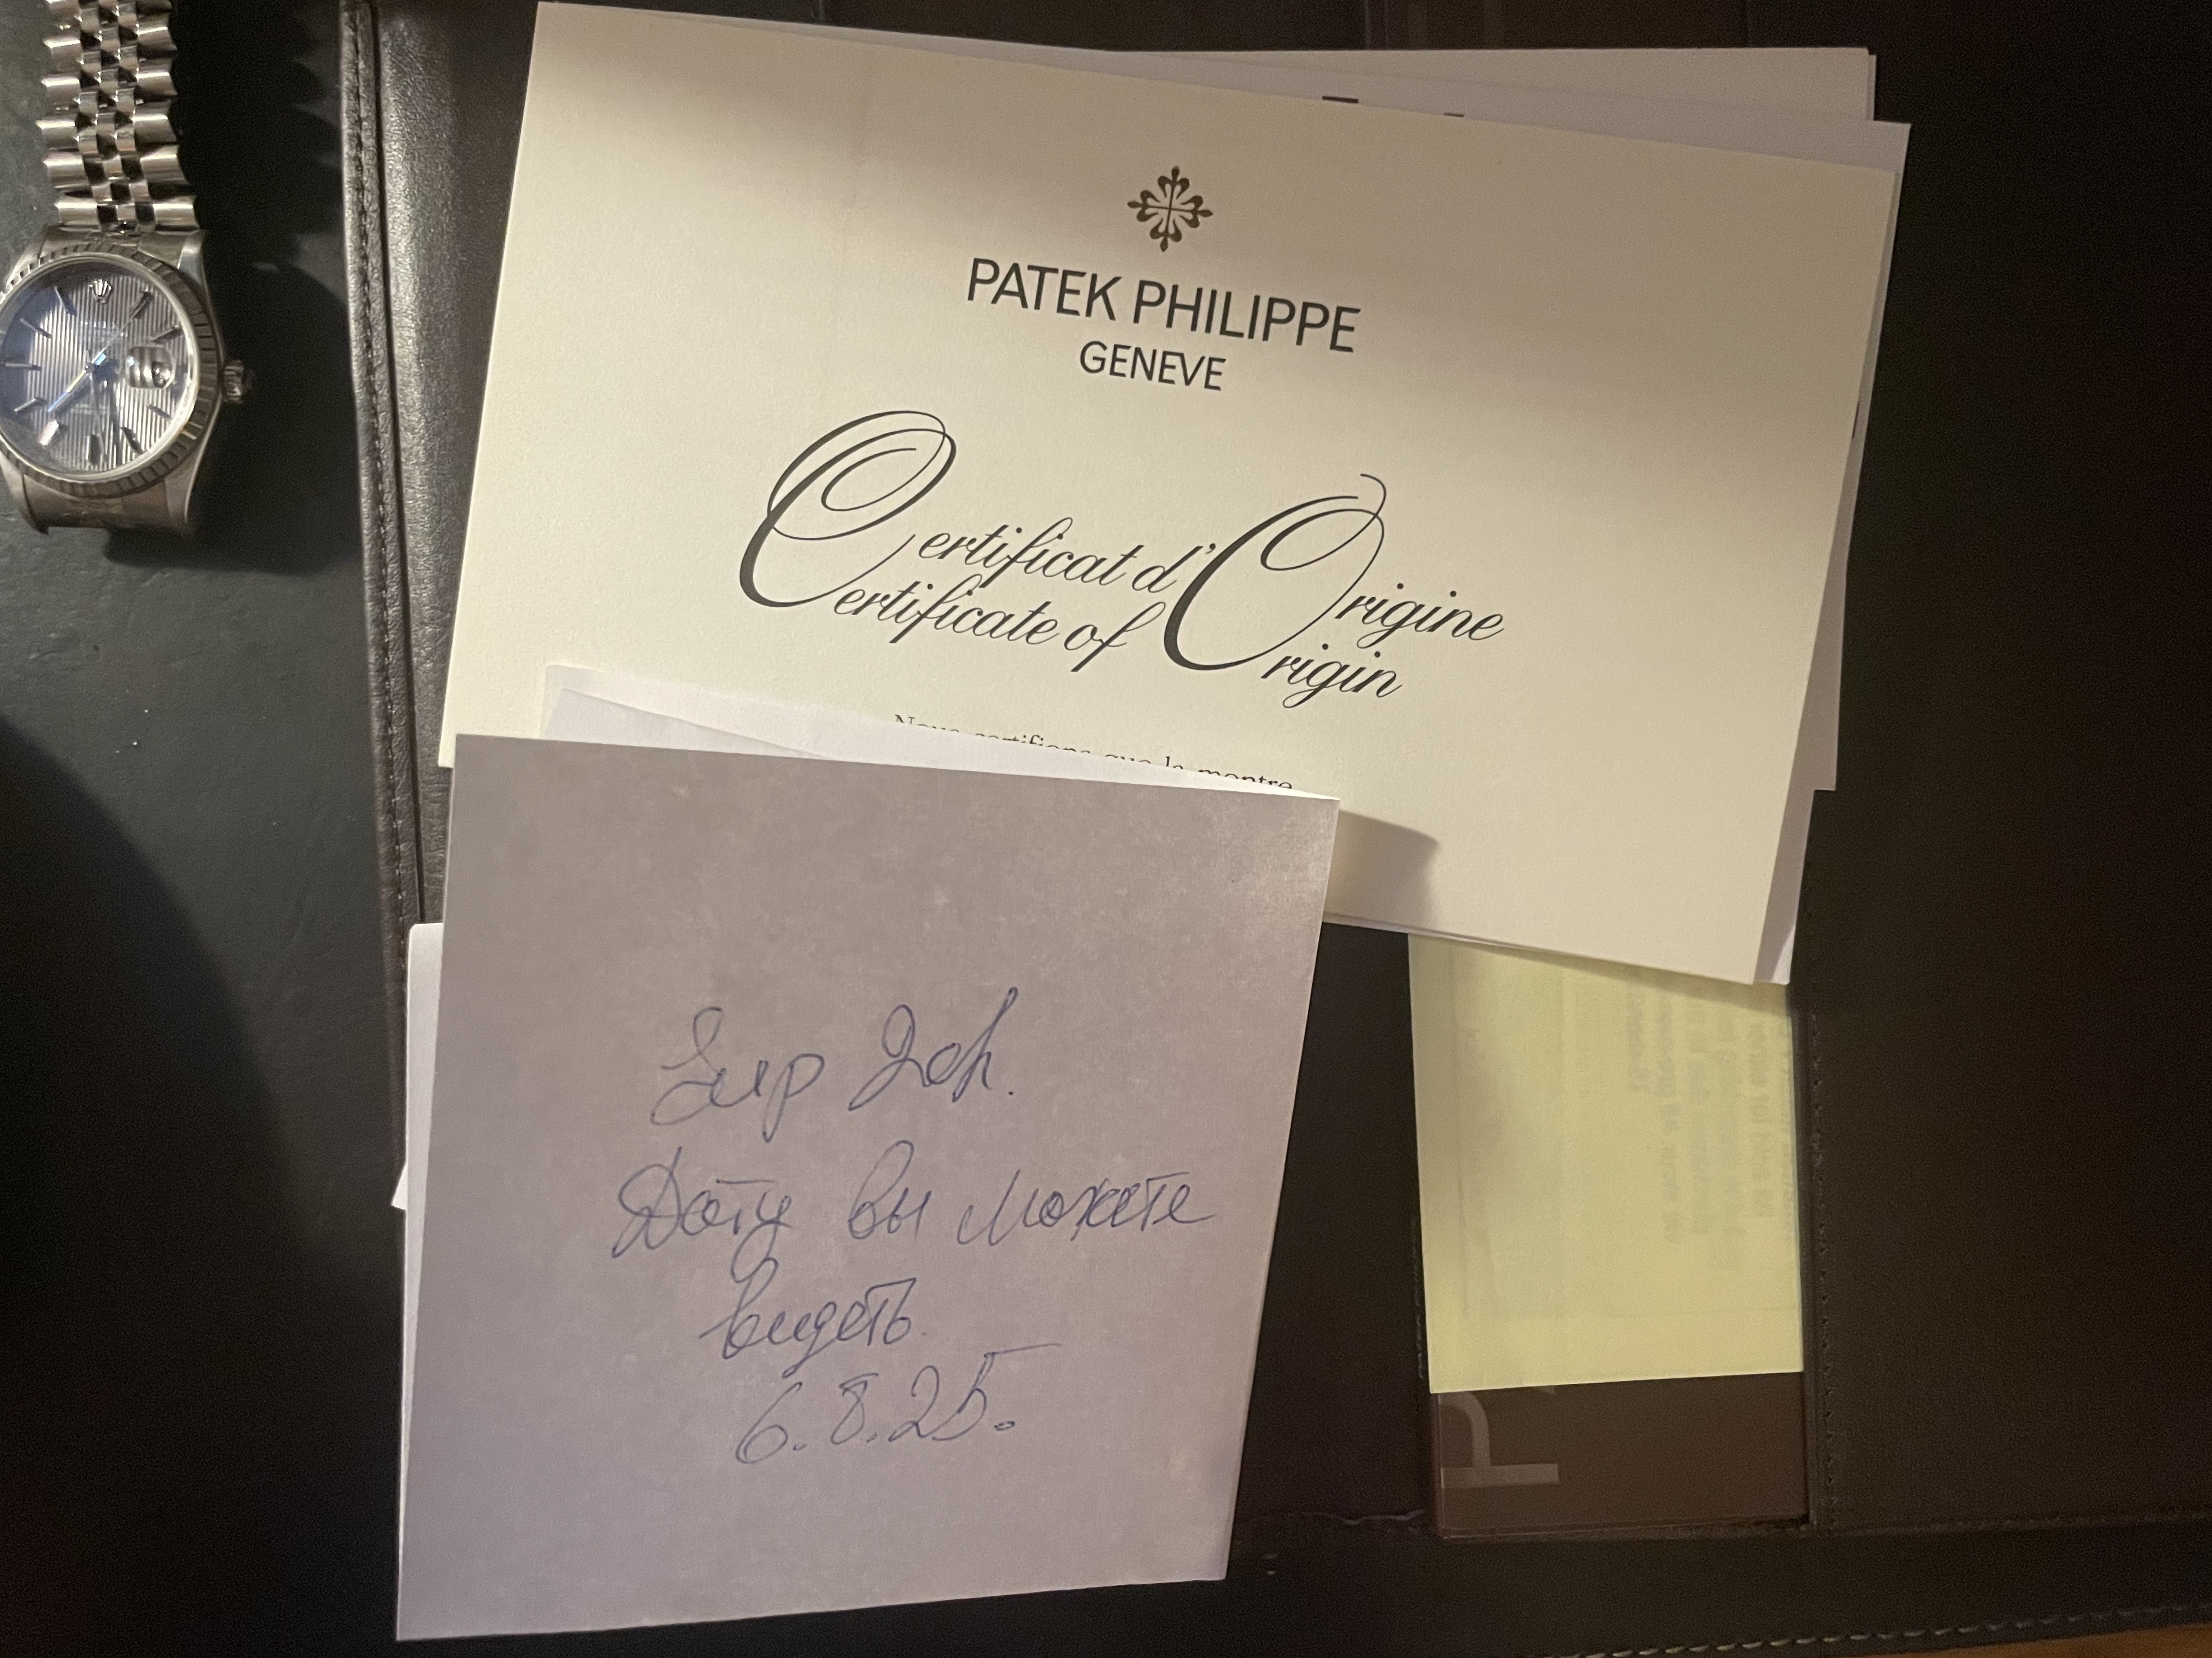 PATEK PHILIPPE
GENEVE
Certificat d'Origine
Certificate of Origin
Nous certifions que la montre
Дату вы можете
видеть.
6.8.25.